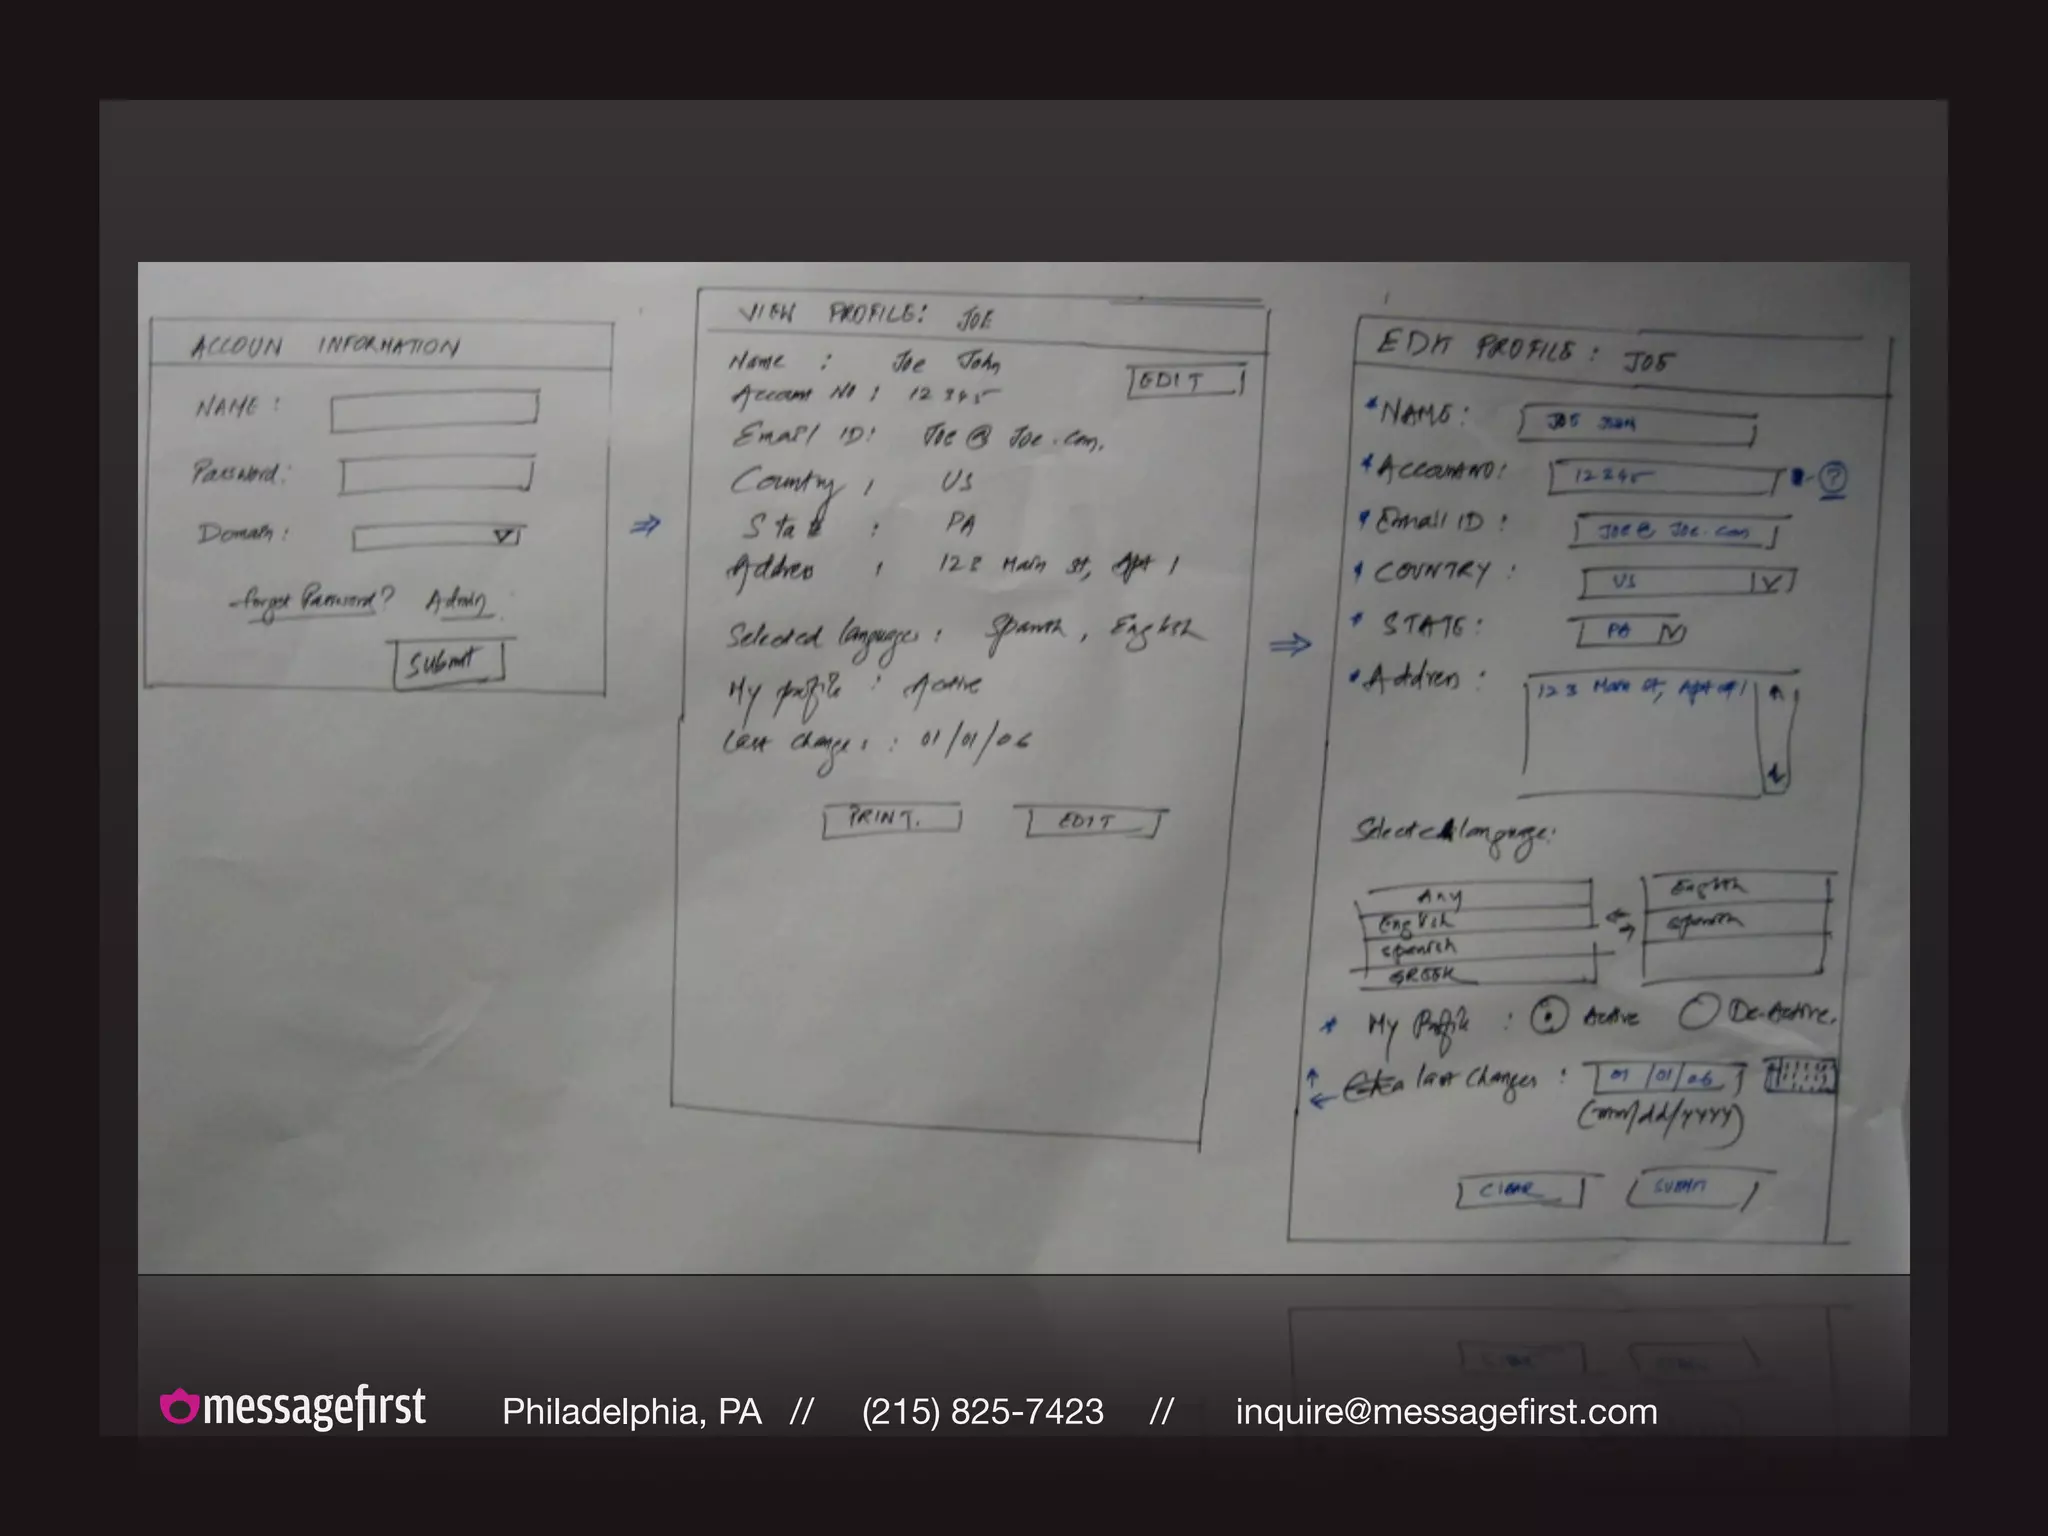 ACCOUN INFORMATION
NAME:
Password:
Domain:
forgot Password? Admin
Submit
VIEW PROFILE: JOE
Name : Joe John
EDIT
Account No : 12345
Email ID: Joe@Joe.com.
Country : US
State : PA
Address : 123 Main St, Apt 1
Selected languages : Spanish, English
My profile : Active
Last changes : 01/01/06
PRINT. EDIT
EDIT PROFILE: JOE
*NAME: JOE JOHN
*ACCOUNT NO: 12345 - ?
*Email ID: JOE@JOE.com
*COUNTRY: US
*STATE: PA
*Address: 123 Main St, Apt #1
Selected language:
Any
English
Spanish
GREEK
English
Spanish
* My Profile : Active De-Active.
last changes : 01/01/06
(mm/dd/yyyy)
CLEAR SUBMIT
messagefirst Philadelphia, PA // (215) 825-7423 // inquire@messagefirst.com